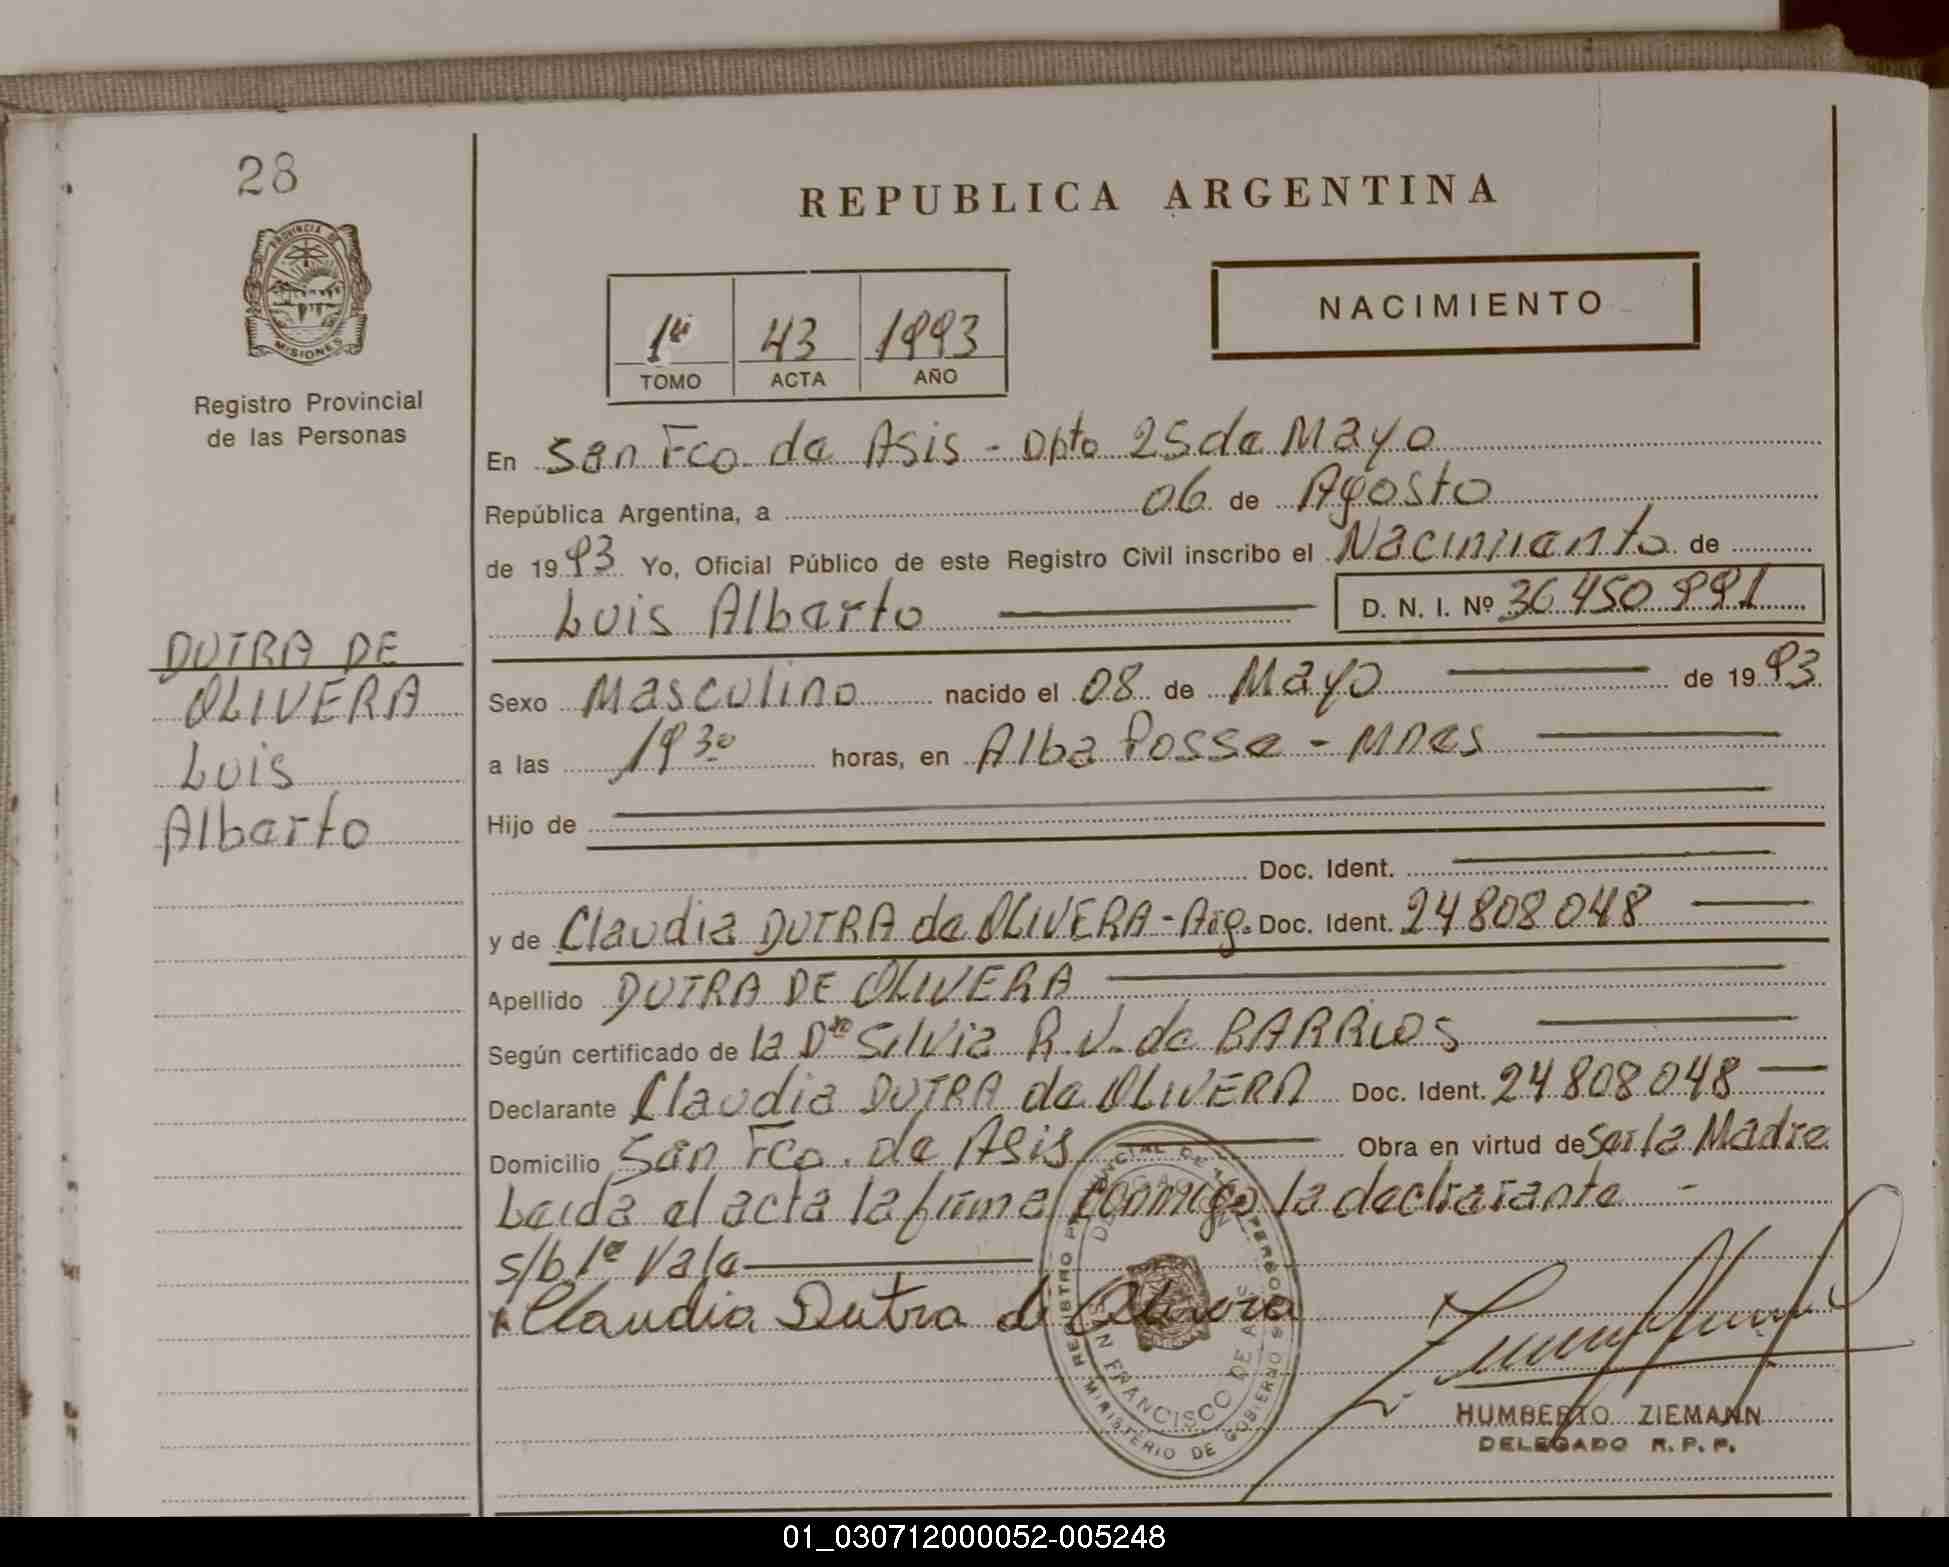 28
REPUBLICA ARGENTINA
PROVINCIA DE
MISIONES
Registro Provincial
de las Personas
NACIMIENTO
1º 43 1993
TOMO ACTA AÑO
En San Fco. de Asis - Dpto 25 de Mayo
República Argentina, a 06 de Agosto
de 1993 Yo, Oficial Público de este Registro Civil inscribo el Nacimiento de
Luis Alberto D. N. I. Nº 36 450 991
DUTRA DE
OLIVERA
Luis
Alberto
Sexo Masculino nacido el 08 de Mayo de 1993
a las 19 30 horas, en Alba Posse - Mnes
Hijo de
Doc. Ident.
y de Claudia DUTRA de OLIVERA - Arg. Doc. Ident. 24 808 048
Apellido DUTRA DE OLIVERA
Según certificado de la Dra Silvia R. V. de BARRIOS
Declarante Claudia DUTRA de OLIVERA Doc. Ident. 24 808 048
Domicilio San Fco. de Asis Obra en virtud de Ser la Madre
Leida el acta la firma conmigo la declarante -
s/b 1º Vale
Claudia Dutra de Olivera
SAN FRANCISCO DE ASIS
MINISTERIO DE GOBIERNO
HUMBERTO ZIEMANN
DELEGADO R. P. P.
01_030712000052-005248